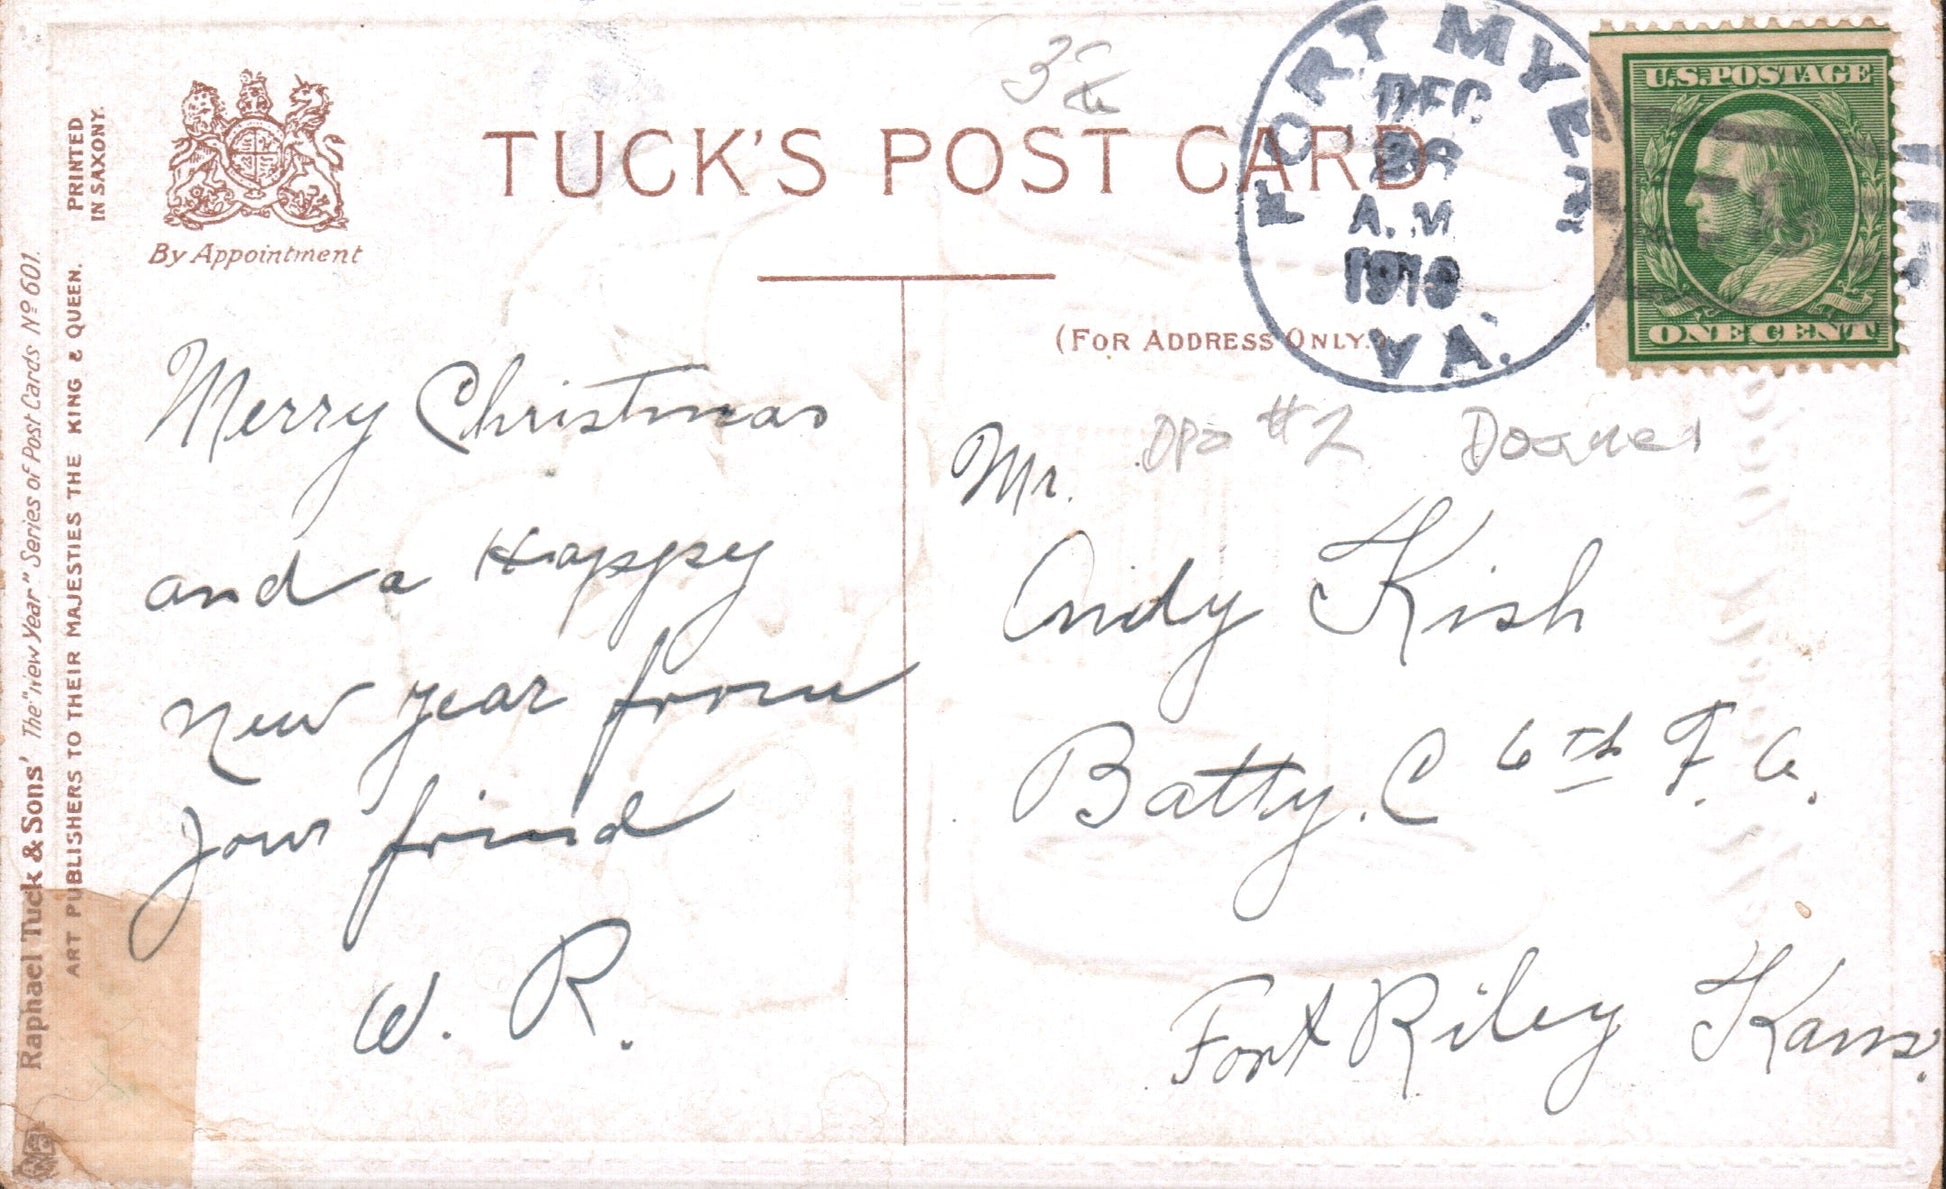 PRINTED
IN SAXONY.
Raphael Tuck & Sons' The "New Year" Series of Post Cards Nº 601.
ART PUBLISHERS TO THEIR MAJESTIES THE KING & QUEEN.
By Appointment
TUCK'S POST CARD
(FOR ADDRESS ONLY.)
FORT MYER
DEC
A.M
1910
VA.
U.S. POSTAGE
ONE CENT
#2
Merry Christmas
and a Happy
New Year from
your friend
W. R.
Mr.
Andy Kish
Batty. C 6th F. A.
Fort Riley Kans.